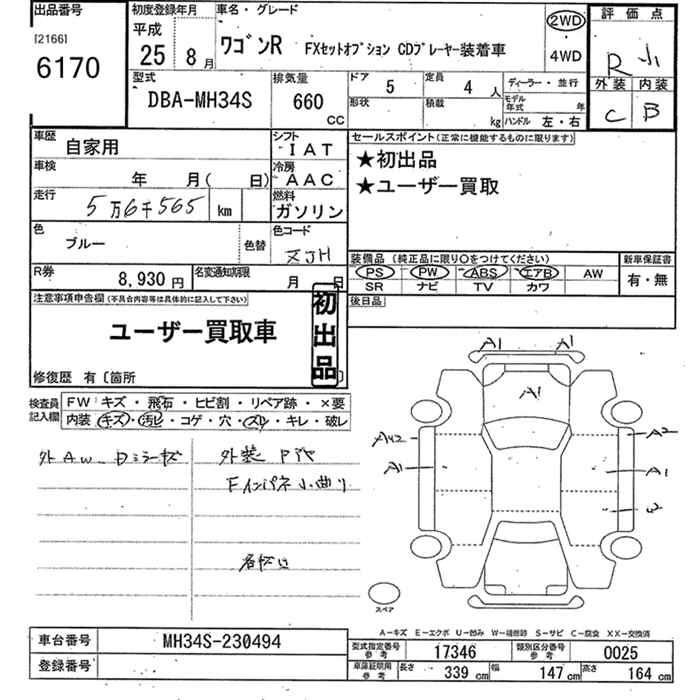 出品番号 初度登録年月 車名・グレード 評価点
[2166] 平成 2WD
6170 25 8月 ワゴンR FXセットオプション CDプレーヤー装着車 4WD R 小
型式 排気量 ドア 5 定員 4人 ディーラー・並行 外装 内装
DBA-MH34S 660 CC 形状 積載 kg モデル年式 年 C B
ハンドル 左・右
車歴 自家用 シフト IAT セールスポイント(正常に機能するものに限ります)
車検 年 月( 日) 冷房 AAC ★初出品
走行 5万6千565 km 燃料 ガソリン ★ユーザー買取
色 ブルー 色替 色コード ZJH
装備品(純正品に限り○をつけてください) 新車保証書
R券 8,930円 名変通知期限 月 日 PS PW ABS エアB AW 有・無
SR ナビ TV カワ
注意事項申告欄(不具合内容等は具体的に記入して下さい) 初出品 後日品
ユーザー買取車
修復歴 有〔箇所
検査員記入欄 FW キズ・飛石・ヒビ割・リペア跡・×要
内装 キズ・汚レ・コゲ・穴・スレ・キレ・破レ
外AW 外装
Fインパネ小曲り
A1 A1
A1
A2
A1 A1
スペア
A-キズ E-エクボ U-凹み W-補修跡 S-サビ C-腐食 XX-交換済
車台番号 MH34S-230494 型式指定番号 参考 17346 類別区分番号 参考 0025
登録番号 車庫証明用 参考 長さ 339cm 幅 147cm 高さ 164cm